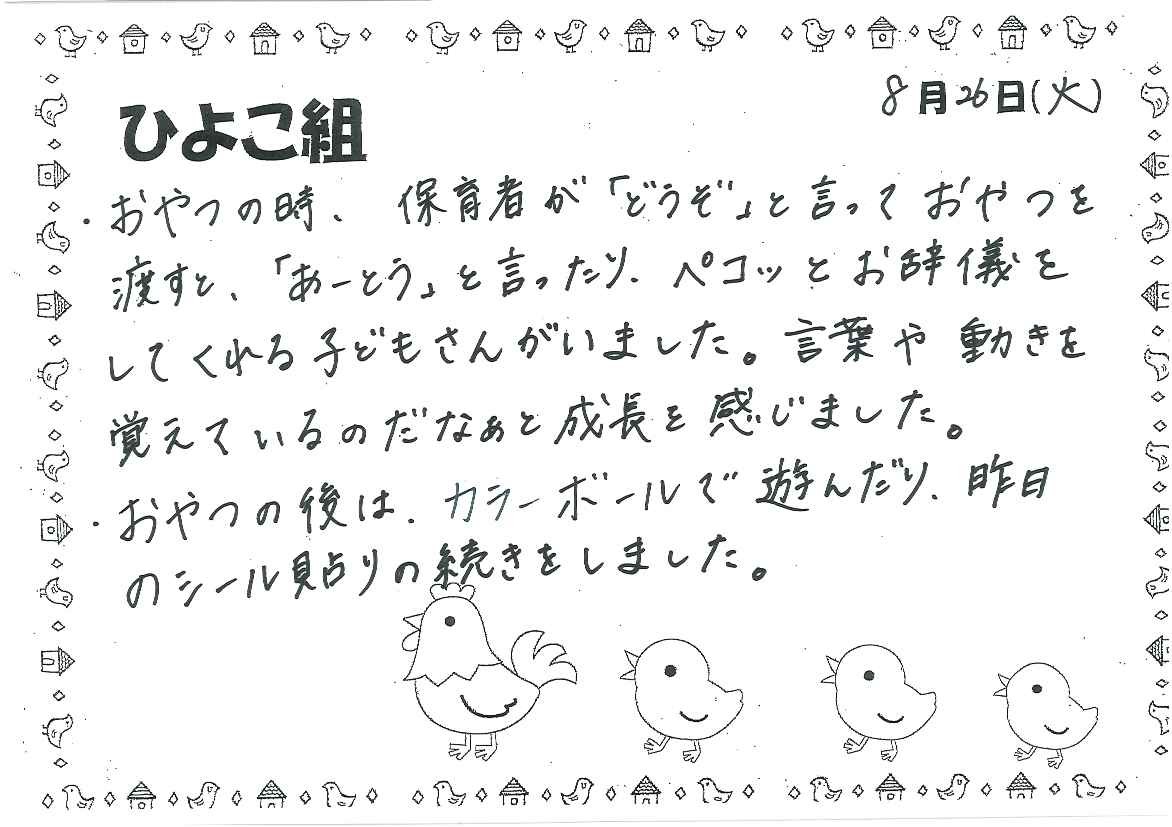 8月26日(火)
ひよこ組
・おやつの時、保育者が「どうぞ」と言っておやつを
渡すと、「あーとう」と言ったり、ペコッとお辞儀を
してくれる子どもさんがいました。言葉や動きを
覚えているのだなぁと成長を感じました。
・おやつの後は、カラーボールで遊んだり、昨日
のシール貼りの続きをしました。